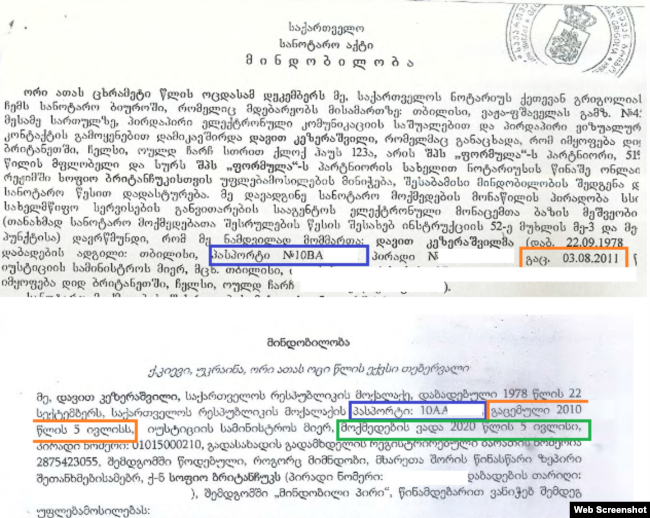 საქართველო
სანოტარო აქტი
მ ი ნ დ ო ბ ი ლ ო ბ ა
ორი ათას ცხრამეტი წლის ოცდასამ დეკემბერს მე, საქართველოს ნოტარიუს ქეთევან გრიგოლიას
ჩემს სანოტარო ბიუროში, რომელიც მდებარეობს მისამართზე: თბილისი, ვაჟა-ფშაველას გამზ.
მესამე სართულზე, პირდაპირი ელექტრონული კომუნიკაციის საშუალებით და პირდაპირი ვიზუალურ
კონტაქტის გამოყენებით დამიკავშირდა დავით კეზერაშვილი, რომელმაც განაცხადა, რომ იმყოფება დიდ
ბრიტანეთში, ჩელსი, ოულდ ჩარჩ სთრით ქლოქ ჰაუს 123ა, არის შპს „ფორმულა“-ს პარტნიორი,
წილის მფლობელი და სურს შპს „ფორმულა“-ს პარტნიორის სახელით ნოტარიუსის წინაშე ონლაინ
რეჟიმში სოფიო ბრიტანჩუკისთვის უფლებამოსილების მინიჭება, შესაბამისი მინდობილობის შედგენა და
სანოტარო წესით დადასტურება. მე დავადგინე სანოტარო მოქმედების მონაწილის პირადობა სსი
სახელმწიფო სერვისების განვითარების სააგენტოს ელექტრონული მონაცემთა ბაზის მეშვეობი
(თანახმად სანოტარო მოქმედებათა შესრულების წესის შესახებ ინსტრუქციის 52-ე მუხლის მე-3 და მე-
პუნქტისა) დავრწმუნდი, რომ მე ნამდვილად მომმართა: დავით კეზერაშვილმა (დაბ. 22.09.1978
დაბადების ადგილი: თბილისი, პასპორტი №10BA პირადი № გაც. 03.08.2011
იუსტიციის სამინისტროს მიერ, მცხ. თბილისი, (
იმყოფება დიდ ბრიტანეთში, ჩელსი, ოულდ ჩარჩ ).
მინდობილობა
ქ.კიევი, უკრაინა, ორი ათას ოცი წლის ექვსი თებერვალი
მე, დავით კეზერაშვილი, საქართველოს რესპუბლიკის მოქალაქე, დაბადებული 1978 წლის 22
სექტემბერს, საქართველოს რესპუბლიკის მოქალაქის პასპორტი: 10AA გაცემული 2010
წლის 5 ივლისს, იუსტიციის სამინისტროს მიერ, მოქმედების ვადა 2020 წლის 5 ივლისი,
პირადი ნომერი: 01015000210, გადასახადის გადამხდელის რეგისტრირებული ბარათის ნომერია
2875423055, შემდგომში წოდებული, როგორც მიმნდობი, მხარეთა შორის წინასწარი ზეპირი
შეთანხმებისამებრ, ქ-ნ სოფიო ბრიტანჩუკს (პირადი ნომერი: დაბადების თარიღი:
), შემდგომში „მინდობილი პირი“, წინამდებარით ვანიჭებ შემდეგ
უფლებამოსილებას:
Web Screenshot